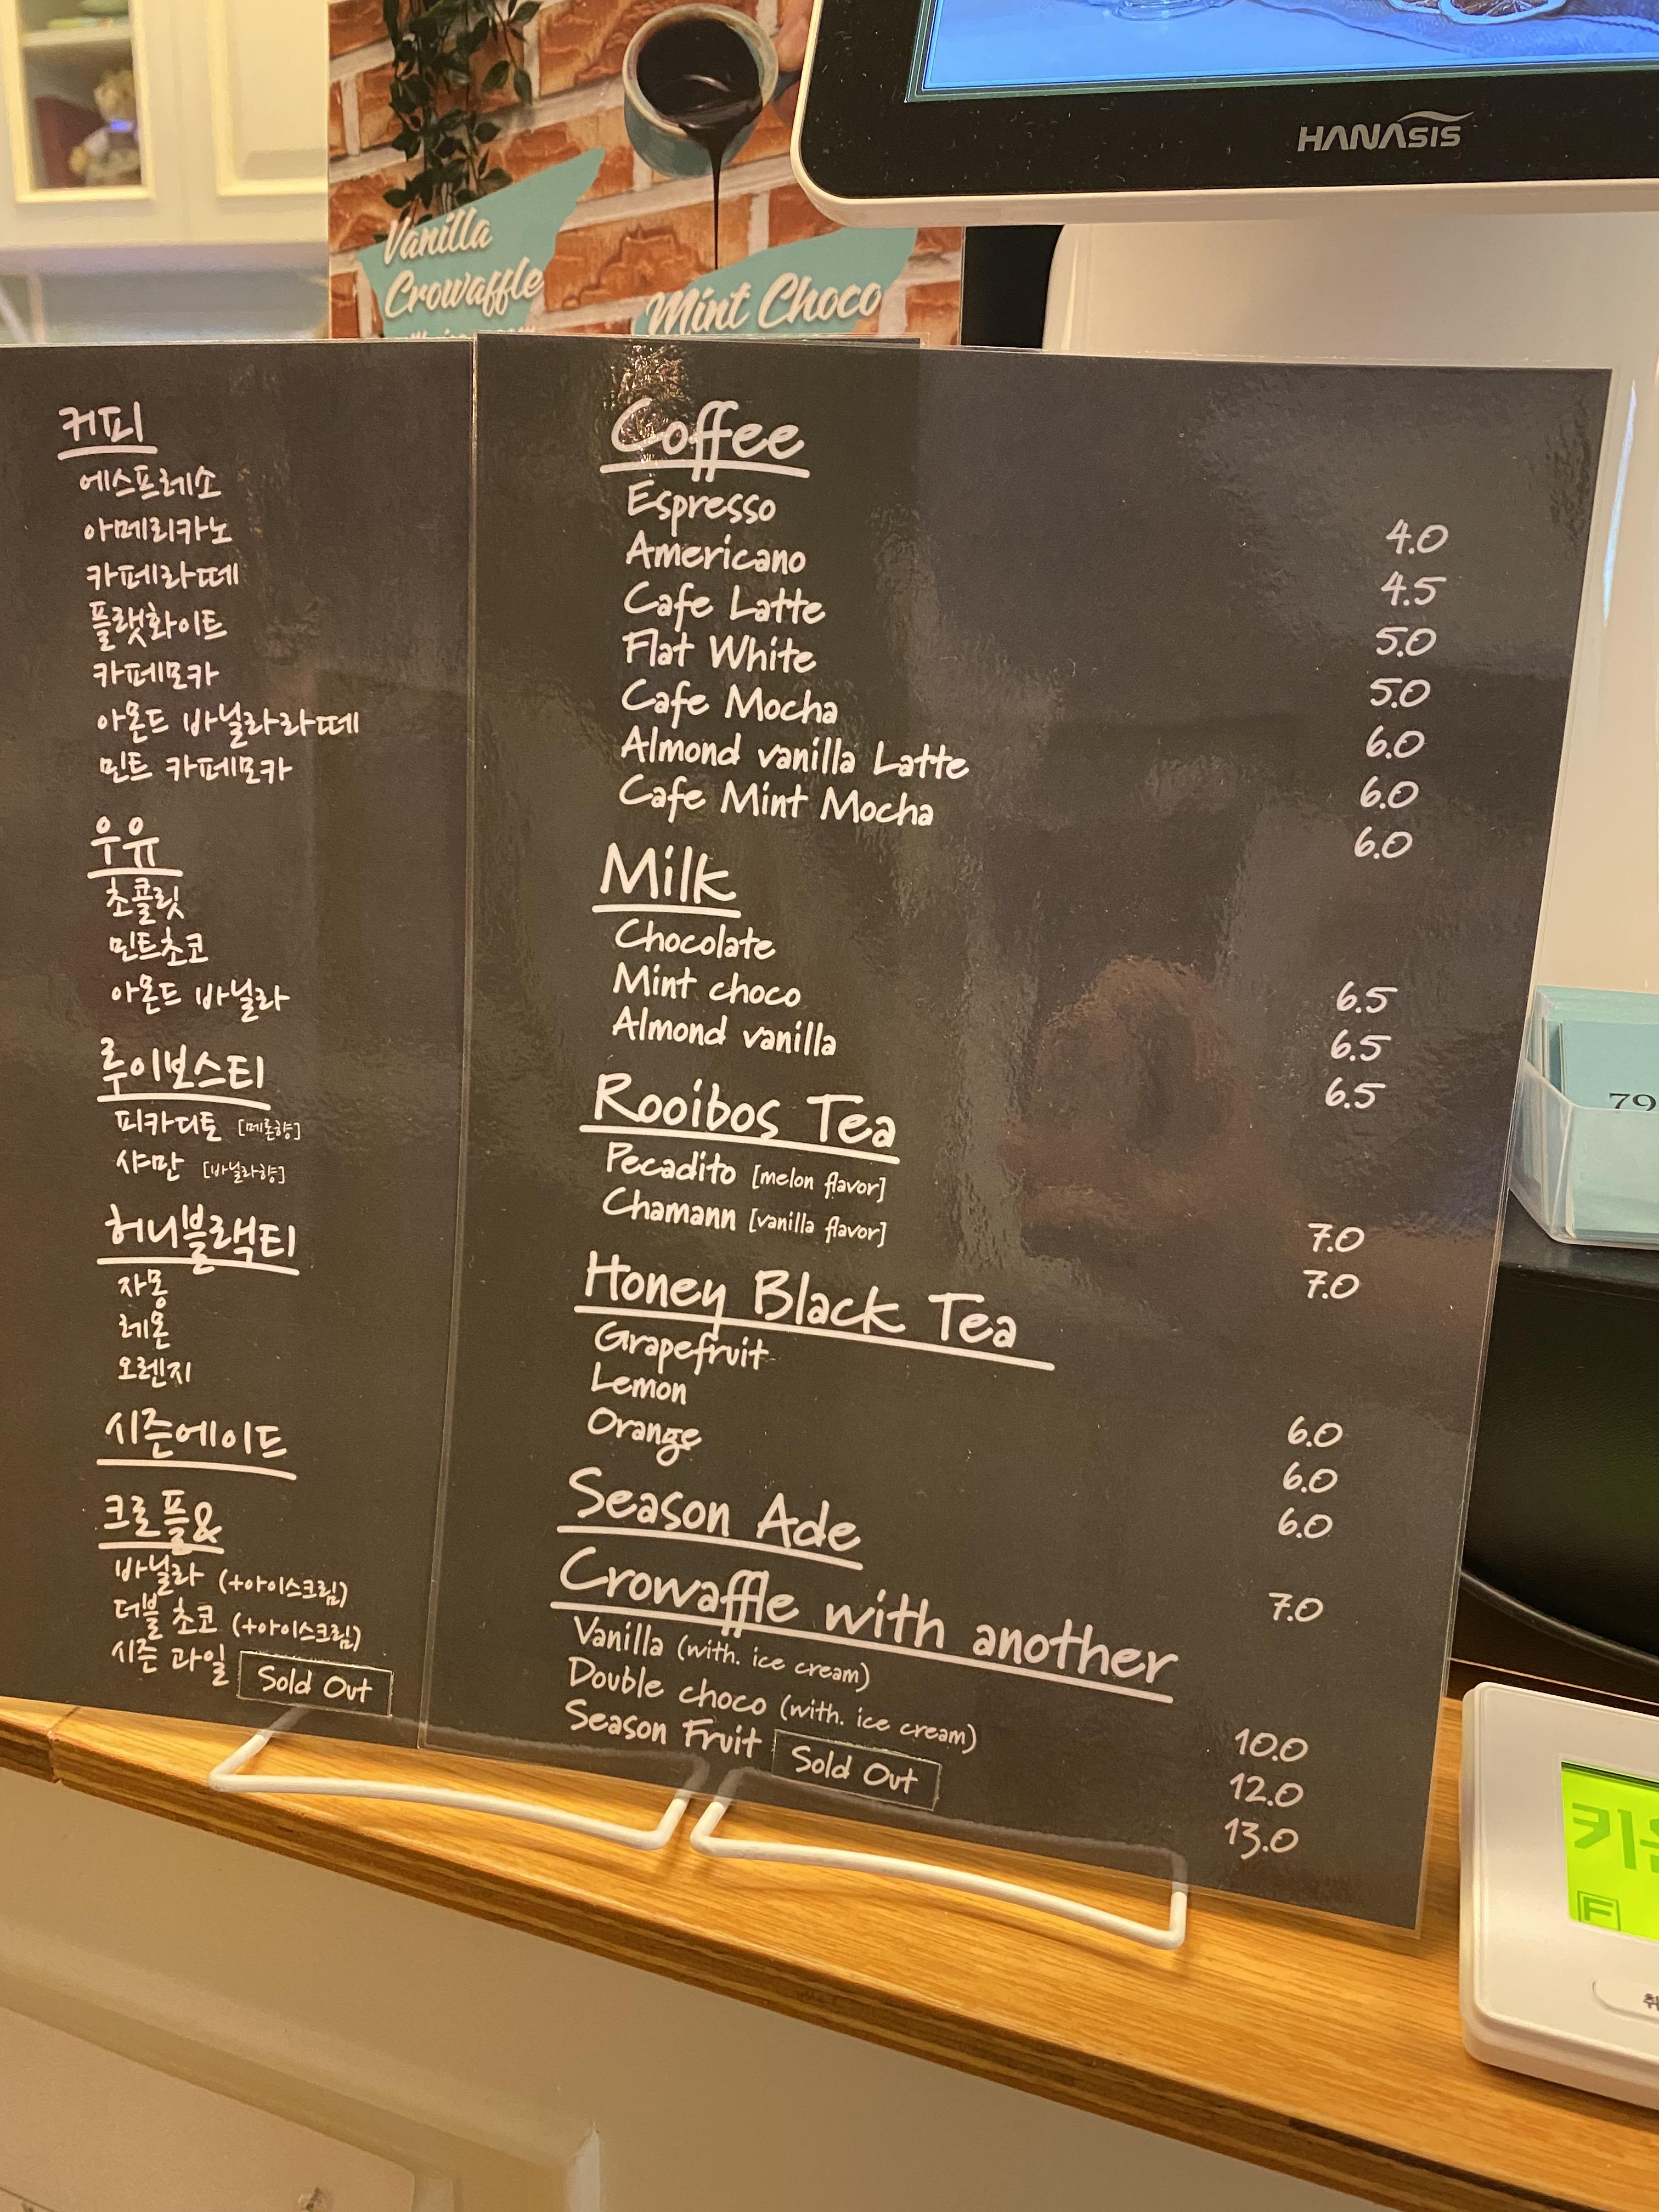 HANAsis
Vanilla
Crowaffle
Mint Choco
커피
에스프레소
아메리카노
카페라떼
플랫화이트
카페모카
아몬드 바닐라라떼
민트 카페모카
우유
초콜릿
민트초코
아몬드 바닐라
루이보스티
피카디토 [메론향]
샤만 [바닐라향]
허니블랙티
자몽
레몬
오렌지
시즌에이드
크로플&
바닐라 (+아이스크림)
더블 초코 (+아이스크림)
시즌 과일 Sold Out
Coffee
Espresso 4.0
Americano 4.5
Cafe Latte 5.0
Flat White 5.0
Cafe Mocha 6.0
Almond vanilla Latte 6.0
Cafe Mint Mocha 6.0
Milk
Chocolate 6.5
Mint choco 6.5
Almond vanilla 6.5
Rooibos Tea
Pecadito [melon flavor] 7.0
Chamann [vanilla flavor] 7.0
Honey Black Tea
Grapefruit 6.0
Lemon 6.0
Orange 6.0
Season Ade 7.0
Crowaffle with another
Vanilla (with. ice cream) 10.0
Double choco (with. ice cream) 12.0
Season Fruit Sold Out 13.0
79
F